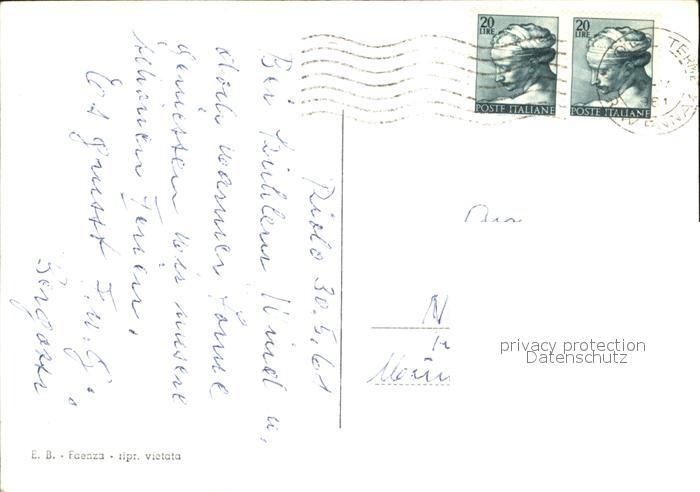 Riolo 30.5.61
Bei kühlem Wind u,
doch warmer Sonne
geniessen wir unsere
schönen Ferien.
Es grüsst
20
LIRE
POSTE ITALIANE
20
LIRE
POSTE ITALIANE
TERME
privacy protection
Datenschutz
E. B. - Faenza - ripr. vietata